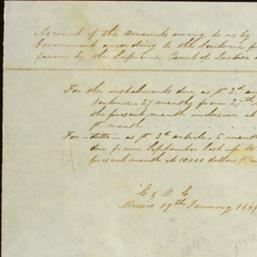 Account of the amounts owing to us by
Government according to the Sentence p
given by the Supreme Court of Justice
For the instalments due as pr 2d a
Sentence - 27 months from 27th
the present month inclusive at
pr month
For - ditto - as pr 3d article - 5 month
due from September last up to
present month at 10000 dollars p
E & D G
Mexico 19th January 184